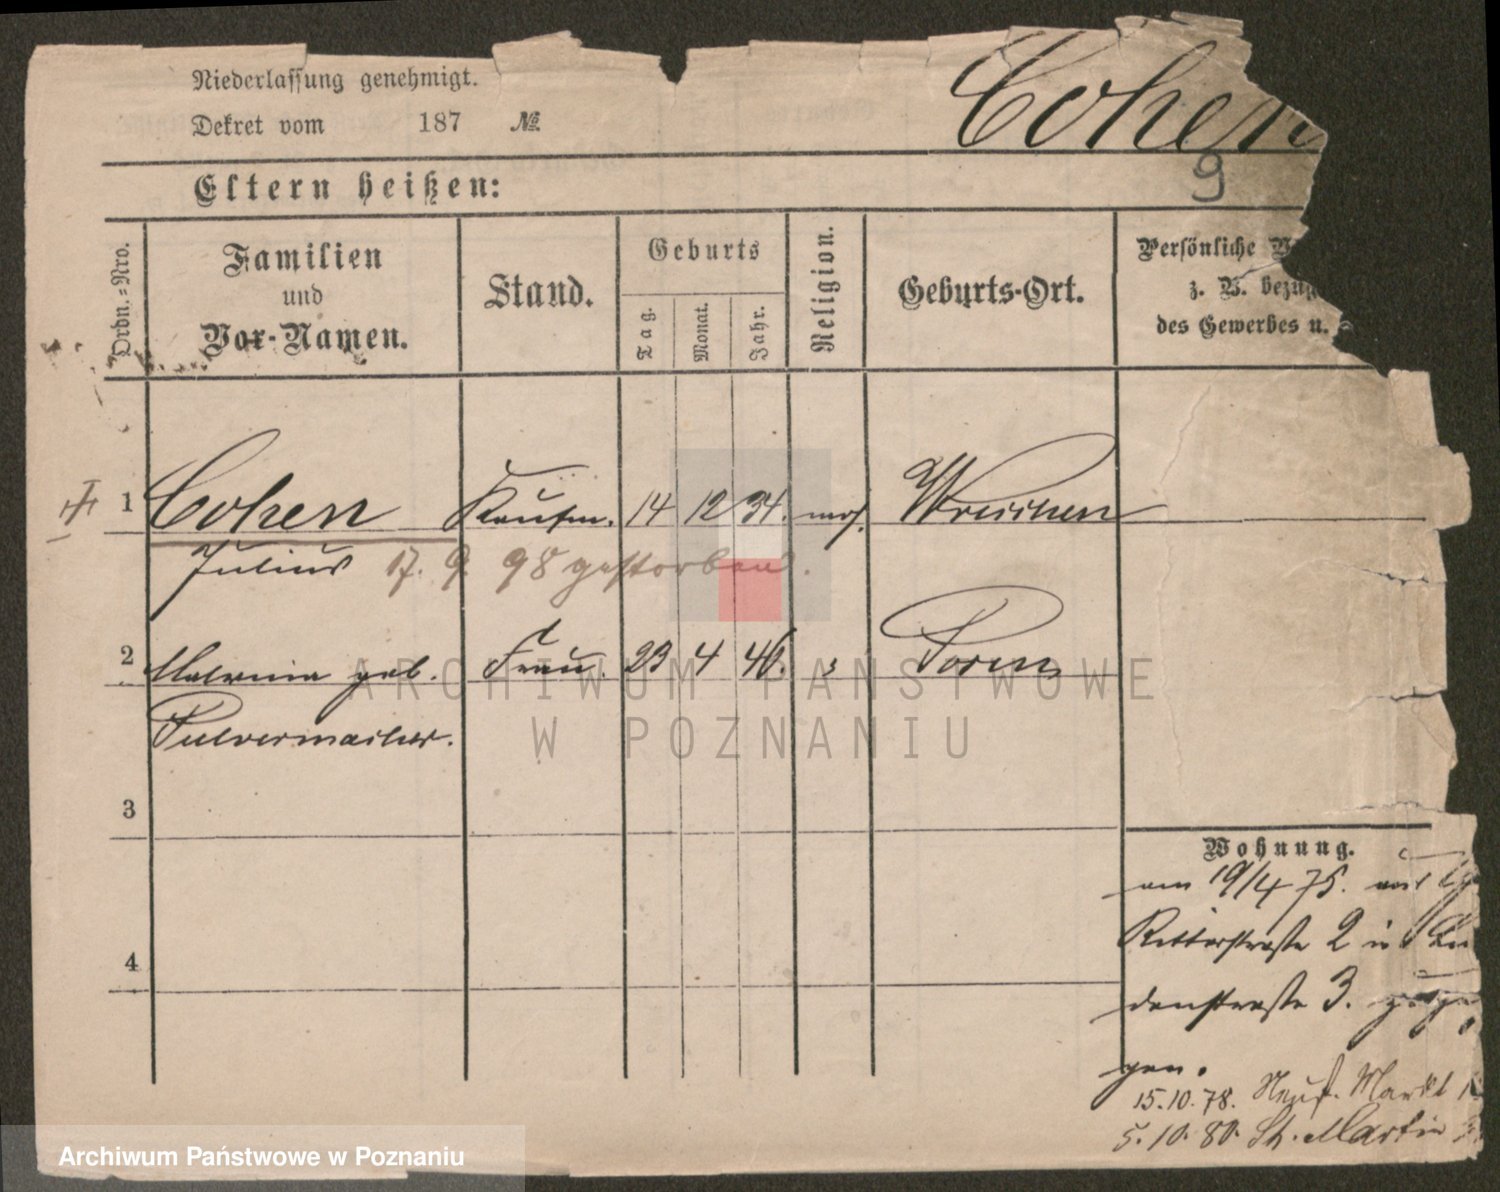 Niederlassung genehmigt.
Dekret vom 187 №
Cohen
9
Eltern heißen:
Ordn.-Nro.
Familien
und
Vor-Namen.
Stand.
Geburts
Tag.
Monat.
Jahr.
Religion.
Geburts-Ort.
Persönliche
z. B. bezüg
des Gewerbes u.
1 Cohen Kaufm. 14 12 34. mos. Wreschen
Julius 17. 9. 98 gestorben.
2 Malwina geb. Frau. 23 4 46. Posen
Pulvermacher.
3
4
Wohnung.
am 19/4 75. von
Ritterstraße 2 in Lin
denstraße 3. gezo
gen.
15.10.78. Neust. Markt
5.10.80. St. Martin
ARCHIWUM PAŃSTWOWE
W POZNANIU
Archiwum Państwowe w Poznaniu